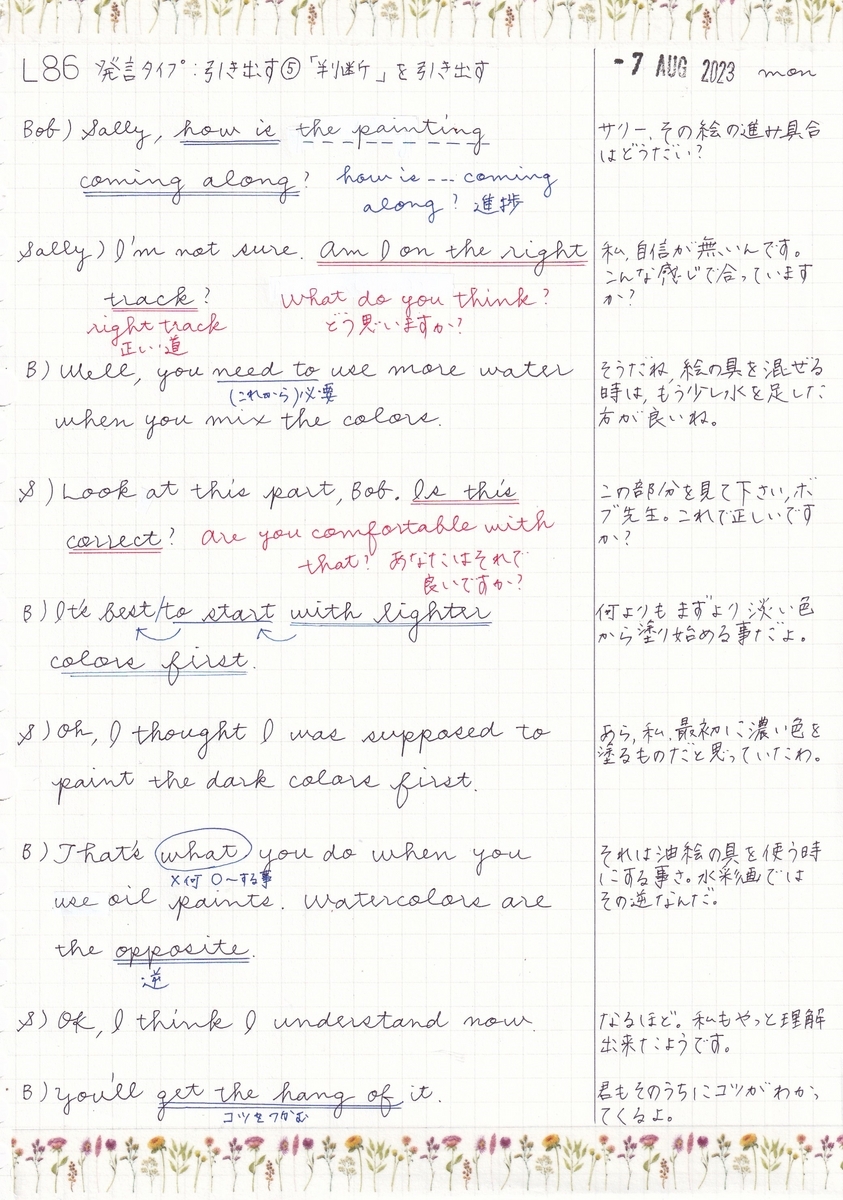 L86 発言タイプ:引き出す⑤「判断」を引き出す
-7 AUG 2023 mon
Bob) Sally, how is the painting
coming along? how is --- coming
along? 進捗
サリー、その絵の進み具合
はどうだい?
Sally) I'm not sure. Am I on the right
track? What do you think?
right track どう思いますか?
正しい道
私、自信が無いんです。
こんな感じで合っています
か?
B) Well, you need to use more water
(これから)必要
when you mix the colors.
そうだね、絵の具を混ぜる
時は、もう少し水を足した
方が良いね。
S) Look at this part, Bob. Is this
correct? are you comfortable with
that? あなたはそれで
良いですか?
この部分を見て下さい、ボ
ブ先生。これで正しいです
か?
B) It's best/to start with lighter
colors first.
何よりもまずより淡い色
から塗り始める事だよ。
S) Oh, I thought I was supposed to
paint the dark colors first.
あら、私、最初に濃い色を
塗るものだと思っていたわ。
B) That's what you do when you
×何 ○〜する事
use oil paints. Watercolors are
the opposite.
逆
それは油絵の具を使う時
にする事さ。水彩画では
その逆なんだ。
S) OK, I think I understand now.
なるほど。私もやっと理解
出来たようです。
B) You'll get the hang of it.
コツをつかむ
君もそのうちにコツがわかっ
てくるよ。